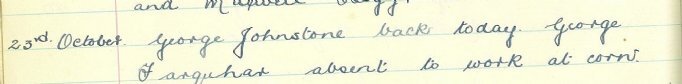 and
23rd. October. George Johnstone back today. George
Farquhar absent to work at corn.